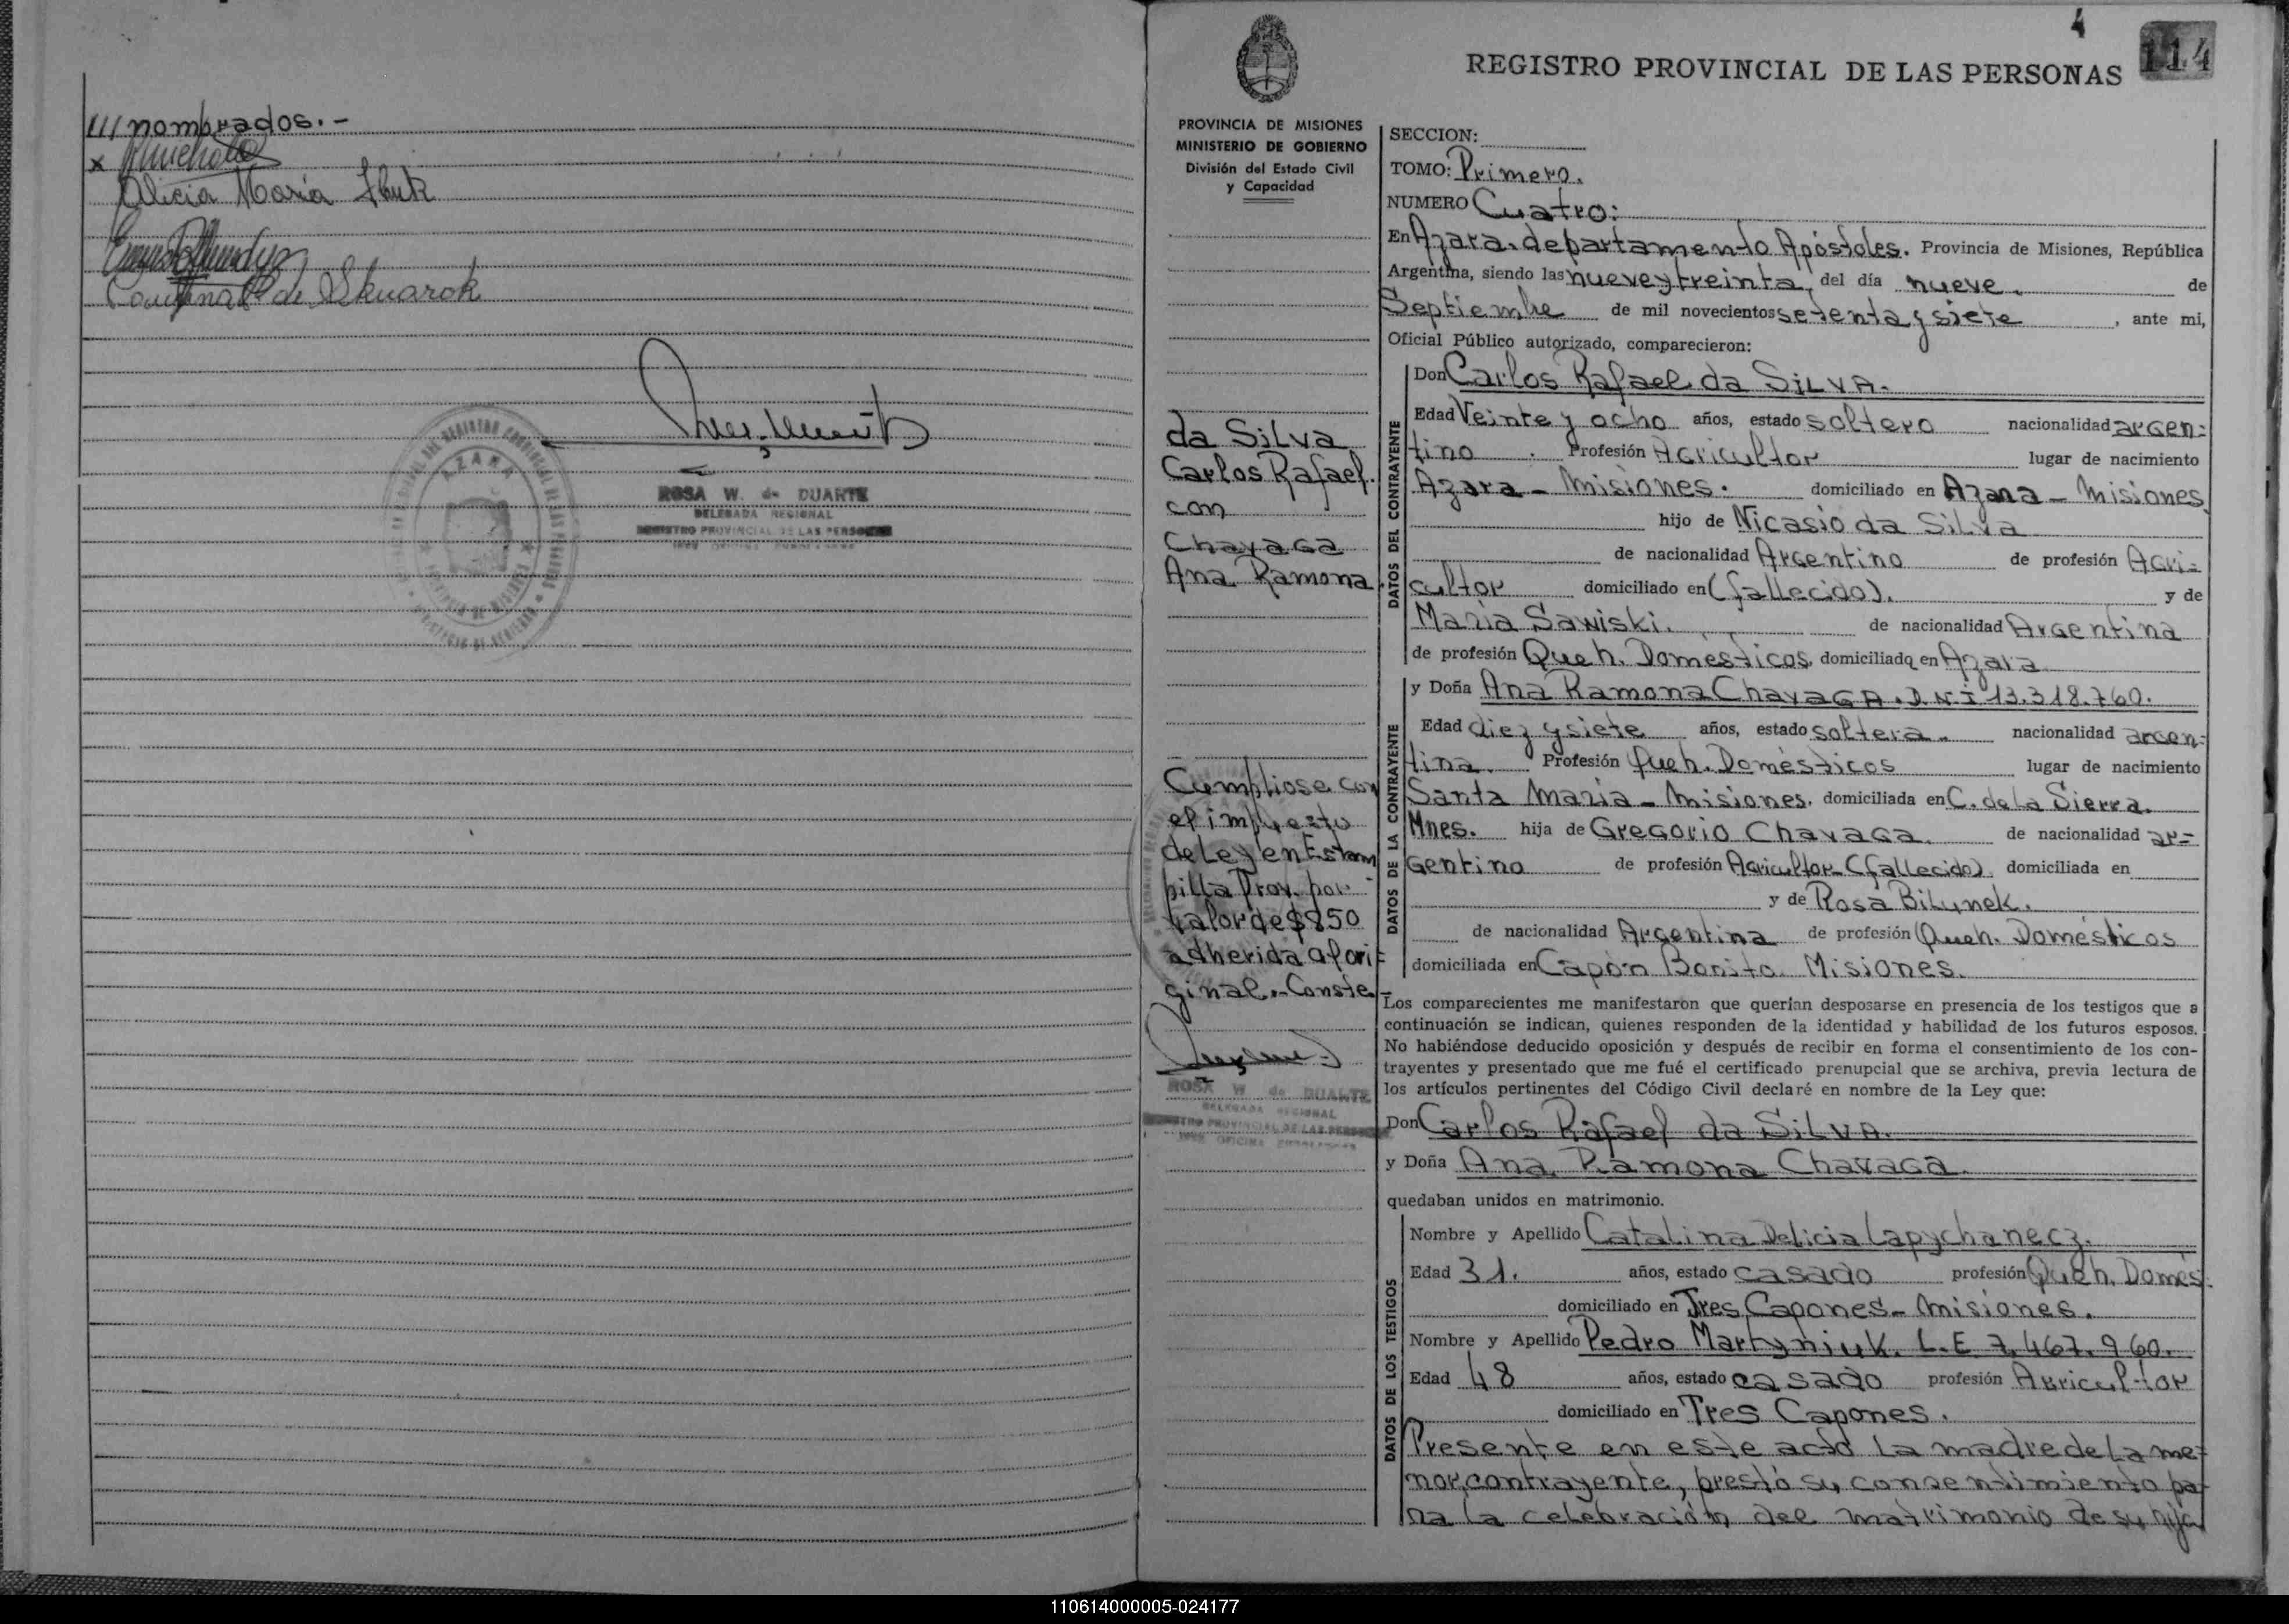 /// nombrados.-
x
Alicia María
de Skuarok
ROSA W. de DUARTE
DELEGADA REGIONAL
REGISTRO PROVINCIAL DE LAS PERSONAS
AZARA
4
114
REGISTRO PROVINCIAL DE LAS PERSONAS
PROVINCIA DE MISIONES
MINISTERIO DE GOBIERNO
División del Estado Civil
y Capacidad
da Silva
Carlos Rafael.
con
Chavaga
Ana Ramona.
Cumpliose con
el impuesto
de Ley en Estam
pilla Prov. por
valor de $850
adherida al ori=
ginal.-Conste-
ROSA W de DUARTE
DELEGADA REGIONAL
REGISTRO PROVINCIAL DE LAS PERSONAS
SECCION:
TOMO: Primero.
NUMERO Cuatro:
En Azara, departamento Apóstoles. Provincia de Misiones, República
Argentina, siendo las nueve y treinta, del día nueve. de
Septiembre de mil novecientos setenta y siete , ante mi,
Oficial Público autorizado, comparecieron:
DATOS DEL CONTRAYENTE
Don Carlos Rafael da SILVA.
Edad Veinte y ocho años, estado soltero nacionalidad argen=
tino . Profesión Agricultor lugar de nacimiento
Azara - Misiones. domiciliado en Azara - Misiones
hijo de Nicasio da Silva
de nacionalidad Argentino de profesión Agri=
cultor domiciliado en (fallecido). y de
María Sawiski. de nacionalidad Argentina
de profesión Queh. Domésticos, domiciliado en Azara
DATOS DE LA CONTRAYENTE
y Doña Ana Ramona Chavaga. D.N.I 13.318.760.
Edad diez y siete años, estado soltera. nacionalidad argen=
tina. Profesión Queh. Domésticos lugar de nacimiento
Santa María - Misiones. domiciliada en C. de la Sierra.
Mnes. hija de Gregorio Chavaga. de nacionalidad ar=
gentino de profesión Agricultor (fallecido) domiciliada en
y de Rosa Bilynek.
de nacionalidad Argentina de profesión Queh. Domésticos
domiciliada en Capón Bonito Misiones.
Los comparecientes me manifestaron que querían desposarse en presencia de los testigos que a
continuación se indican, quienes responden de la identidad y habilidad de los futuros esposos.
No habiéndose deducido oposición y después de recibir en forma el consentimiento de los con-
trayentes y presentado que me fué el certificado prenupcial que se archiva, previa lectura de
los artículos pertinentes del Código Civil declaré en nombre de la Ley que:
Don Carlos Rafael da SILVA.
y Doña Ana Ramona Chavaga.
quedaban unidos en matrimonio.
DATOS DE LOS TESTIGOS
Nombre y Apellido Catalina Delicia Lapychanecz.
Edad 31. años, estado casado profesión Queh. Domés.
domiciliado en Tres Capones - Misiones.
Nombre y Apellido Pedro Martyniuk. L.E 7.467.960.
Edad 48 años, estado casado profesión Agricultor
domiciliado en Tres Capones.
Presente en este acto la madre de la me=
nor contrayente, prestó su consentimiento pa=
ra la celebración del matrimonio de su hija
110614000005-024177